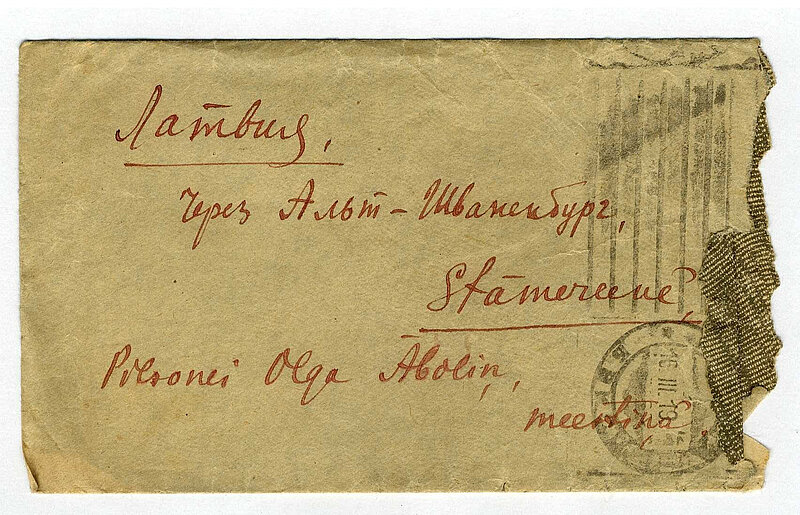 Латвия,
Через Альт-Шваненбург,
Stāmereenē,
Pilsonei Olga Āboliņ,
16 III 19